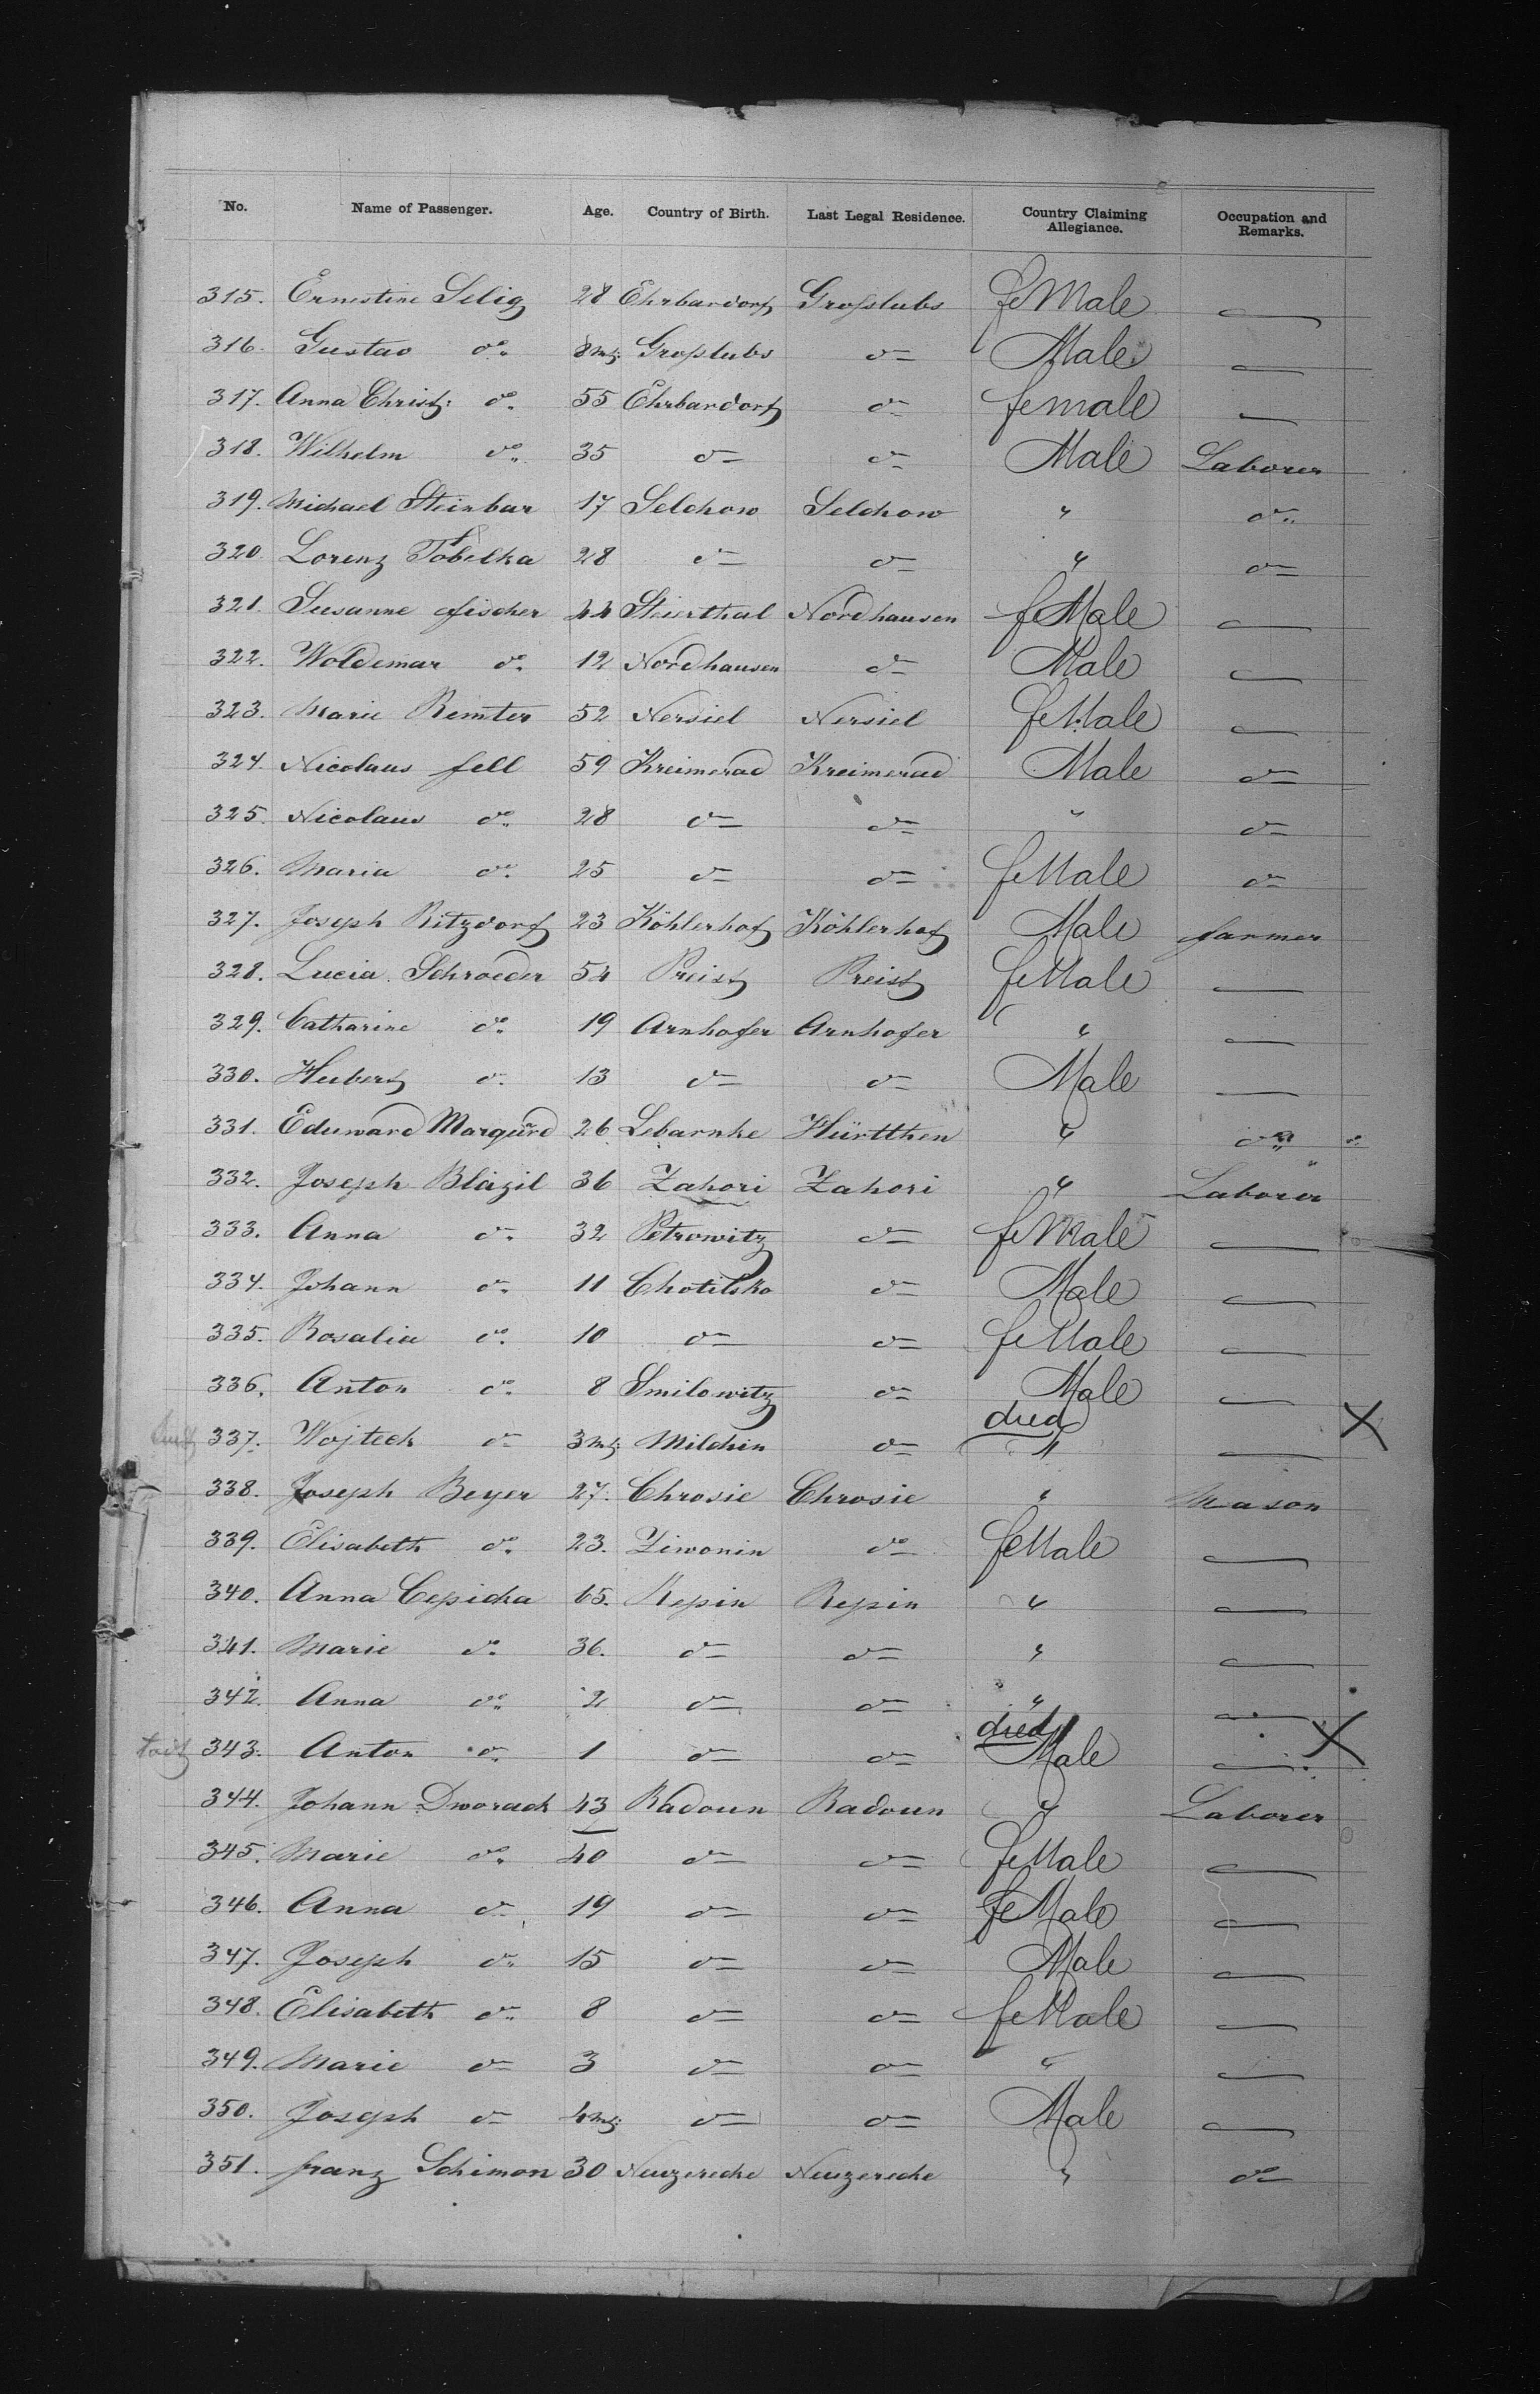 No. Name of Passenger. Age. Country of Birth. Last Legal Residence. Country Claiming Allegiance. Occupation and Remarks.
315. Ernestine Selig 28 Ehrbardorf Großlubs feMale —
316. Gustav do. 8 mt. Großlubs do Male —
317. Anna Christ: do. 55 Ehrbardorf do female —
318. Wilhelm do. 35 do do Male Laborer
319. Michael Steinbar 17 Selchow Selchow " do.
320. Lorenz Tobelka 28 do do " do
321. Susanne fischer 44 Steirthal Nordhausen feMale —
322. Woldemar do. 12 Nordhausen do Male —
323. Marie Remter 52 Nersiel Nersiel feMale —
324. Nicolaus fell 59 Kreimerad Kreimerad Male do
325. Nicolaus do. 28 do do " do
326. Maria do. 25 do do feMale do
327. Joseph Ritzdorf 23 Köhlerhof Köhlerhof Male farmer
328. Lucia Schroeder 54 Preist Preist feMale —
329. Catharine do. 19 Arnhofer Arnhofer " —
330. Hubert do. 13 do do Male —
331. Eduward Marquard 26 Lebarnke Hürtthen " do
332. Joseph Blazil 36 Zahori Zahori " Laborer
333. Anna do. 32 Petrowitz do feMale —
334. Johann do. 11 Chotilsko do Male —
335. Rosalia do. 10 do do feMale —
336. Anton do. 8 Smilowitz do Male —
died
337. Wojtech do 3 mt. Milchin do " — X
338. Joseph Beyer 27. Chrosie Chrosie " Mason
339. Elisabeth do. 23. Ziwonin do feMale —
340. Anna Cepicka 65. Repin Repin " —
341. Marie do. 36. do do " —
342. Anna do. 2 do do " —
died
todt 343. Anton do. 1 do do Male — X
344. Johann Dworack 43 Radoun Radoun " Laborer
345. Marie do. 40 do do feMale —
346. Anna do. 19 do do feMale —
347. Joseph do. 15 do do Male —
348. Elisabeth do. 8 do do feMale —
349. Marie do 3 do do " —
350. Joseph do 4 mt. do do Male —
351. franz Schimon 30 Neuzereche Neuzereche " do